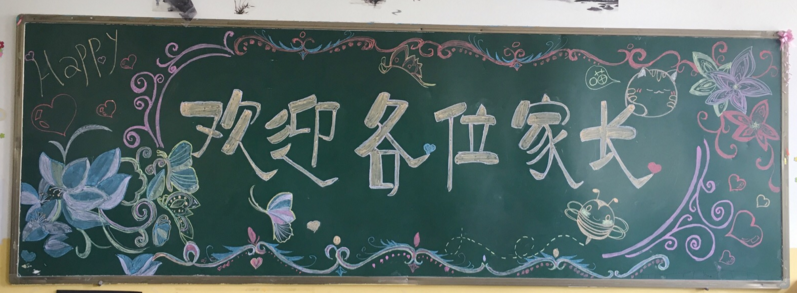 Happy
欢迎各位家长